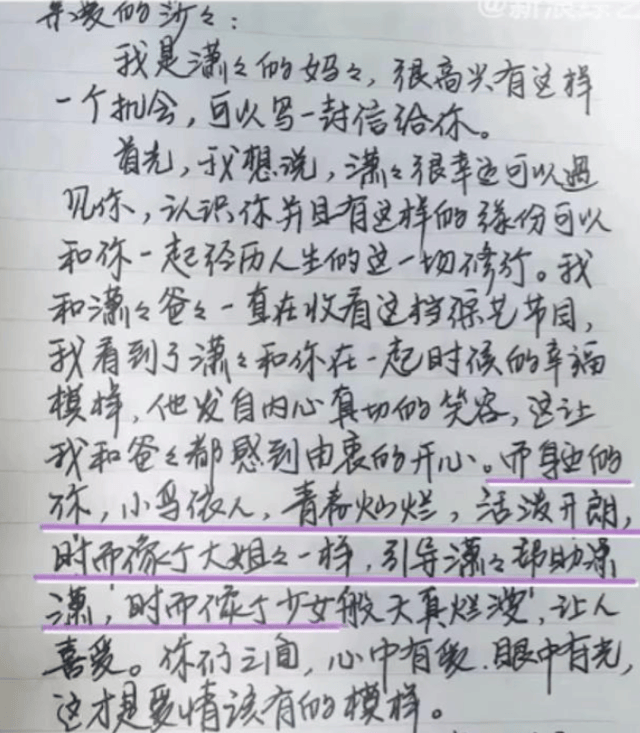 亲爱的沙々：
@新浪综艺
我是潇々的妈々，很高兴有这样
一个机会，可以写一封信给你。
首先，我想说，潇々很幸运可以遇
见你，认识你并且有这样的缘份可以
和你一起经历人生的这一切修行。我
和潇々爸々一直在收看这档综艺节目，
我看到了潇々和你在一起时候的幸福
模样，他发自内心真切的笑容，这让
我和爸々都感到由衷的开心。而身边的
你，小鸟依人，青春灿烂，活泼开朗，
时而像个大姐々一样，引导潇々帮助潇
潇，时而像个少女般天真烂漫，让人
喜爱。你们之间，心中有爱.眼中有光，
这才是爱情该有的模样。